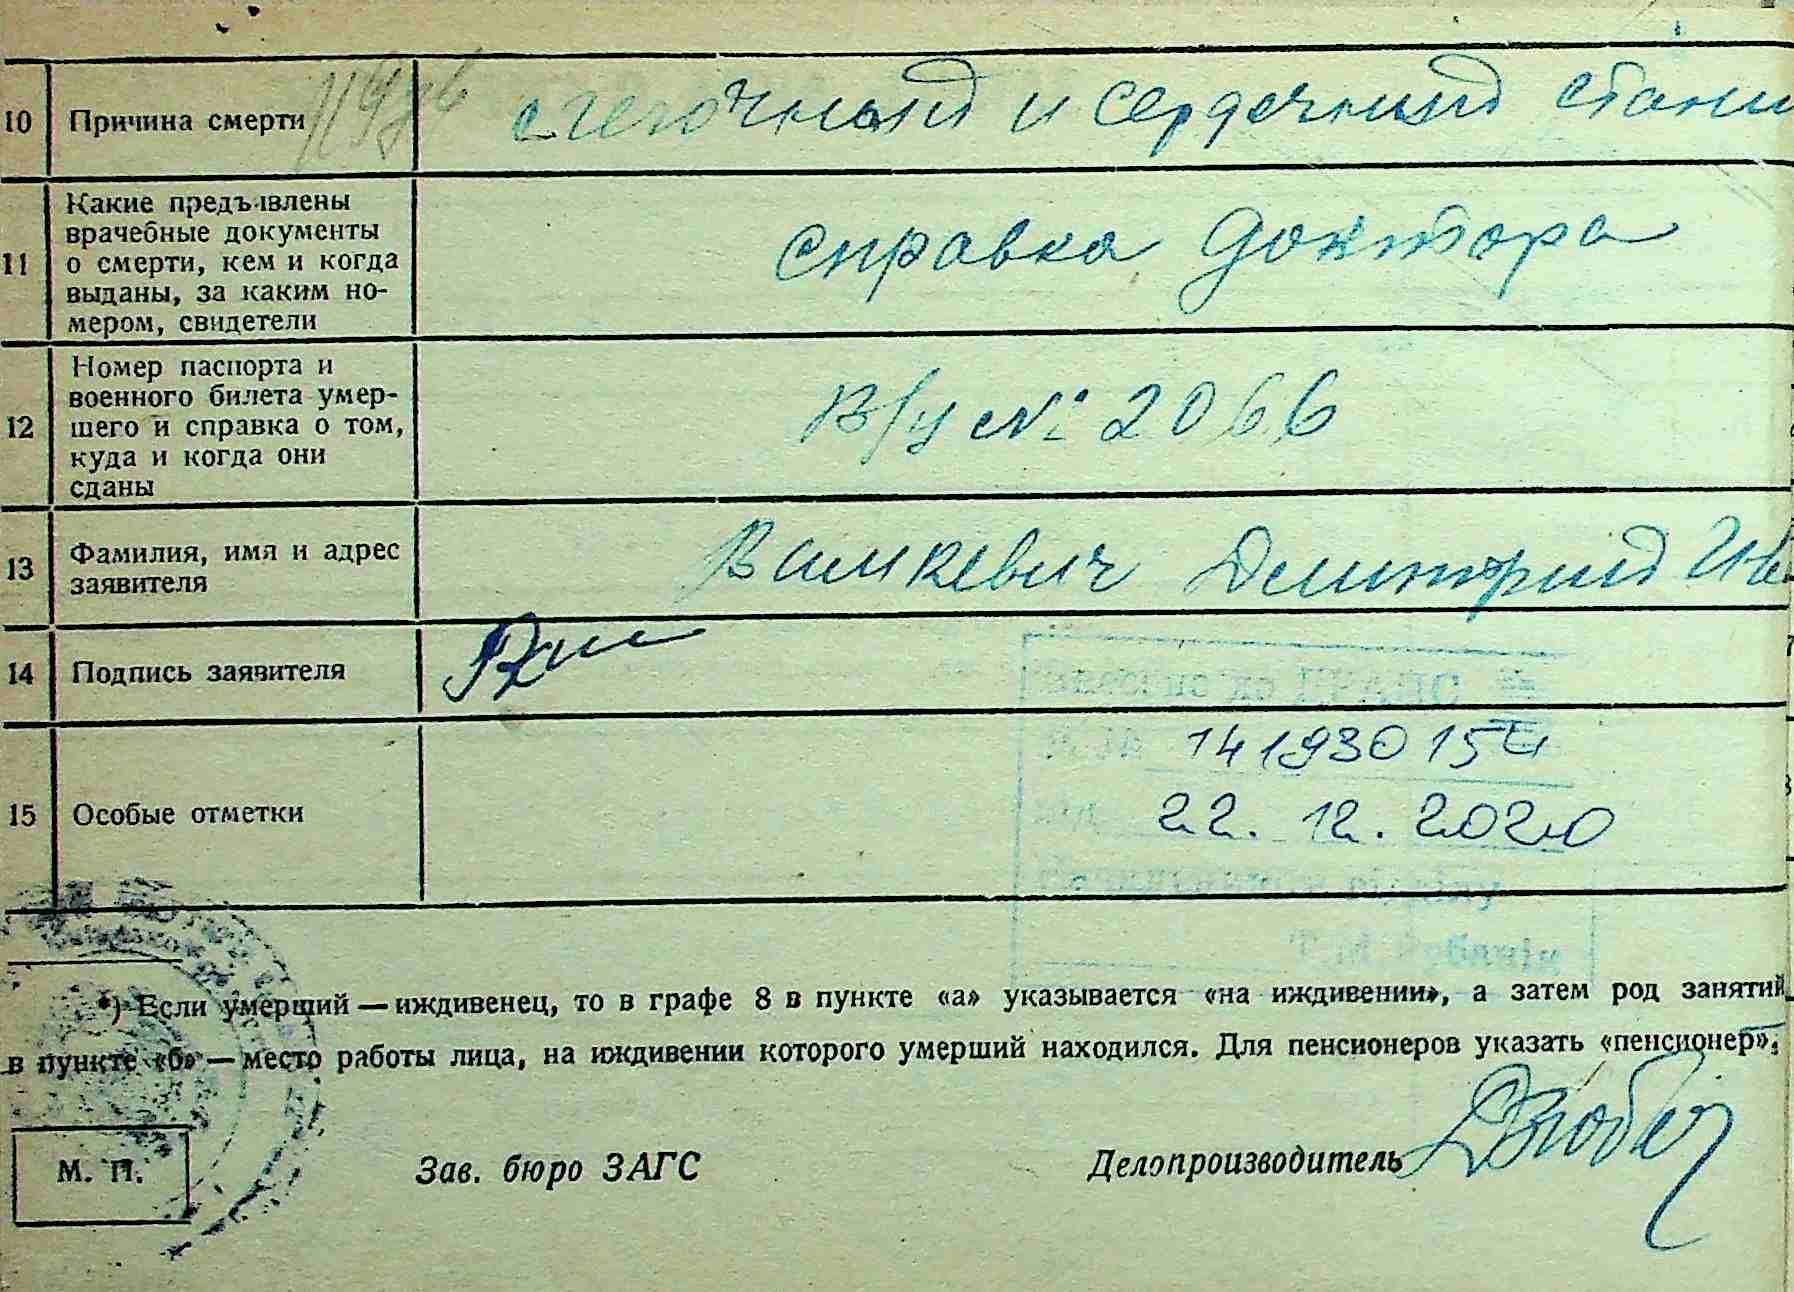 10 Причина смерти легочный и сердечный
11 Какие предъявлены
врачебные документы
о смерти, кем и когда
выданы, за каким но-
мером, свидетели
справка доктора
12 Номер паспорта и
военного билета умер-
шего и справка о том,
куда и когда они
сданы
№ 2066
13 Фамилия, имя и адрес
заявителя
Дмитрий
14 Подпись заявителя
15 Особые отметки
141930154
22.12.2020
*) Если умерший — иждивенец, то в графе 8 в пункте «а» указывается «на иждивении», а затем род занятий
в пункте «б» — место работы лица, на иждивении которого умерший находился. Для пенсионеров указать «пенсионер».
М. П. Зав. бюро ЗАГС Делопроизводитель